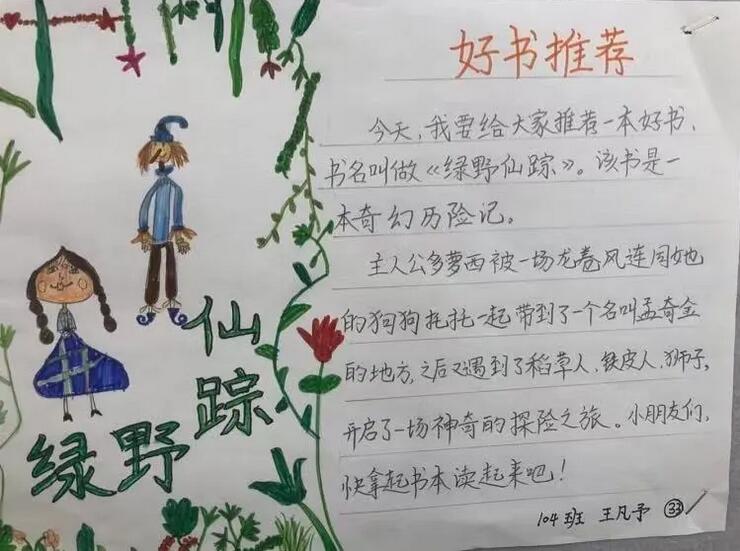 好书推荐
今天，我要给大家推荐一本好书，
书名叫做《绿野仙踪》。该书是一
本奇幻历险记。
主人公多萝西被一场龙卷风连同她
的狗狗托托一起带到了一个名叫孟奇金
的地方，之后又遇到了稻草人、铁皮人、狮子，
开启了一场神奇的探险之旅。小朋友们，
快拿起书本读起来吧！
104班 王凡予 33
绿野仙踪